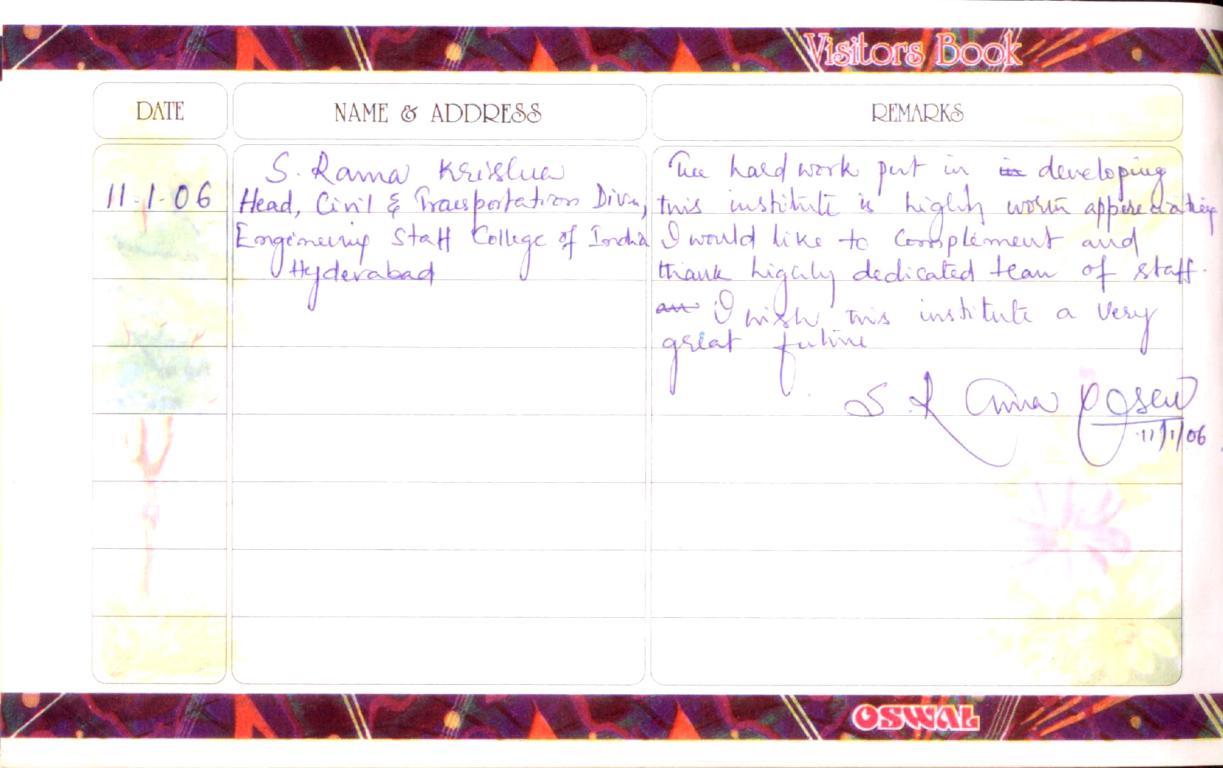 Visitors Book
DATE
NAME & ADDRESS
REMARKS
11-1-06
S. Rama Krishna
Head, Civil & Transportation Divn,
Engineering Staff College of India
Hyderabad
The hard work put in in developing
this institute is highly worth appreciating
I would like to complement and
thank highly dedicated team of staff.
I wish this institute a very
great future
11/1/06
OSWAL